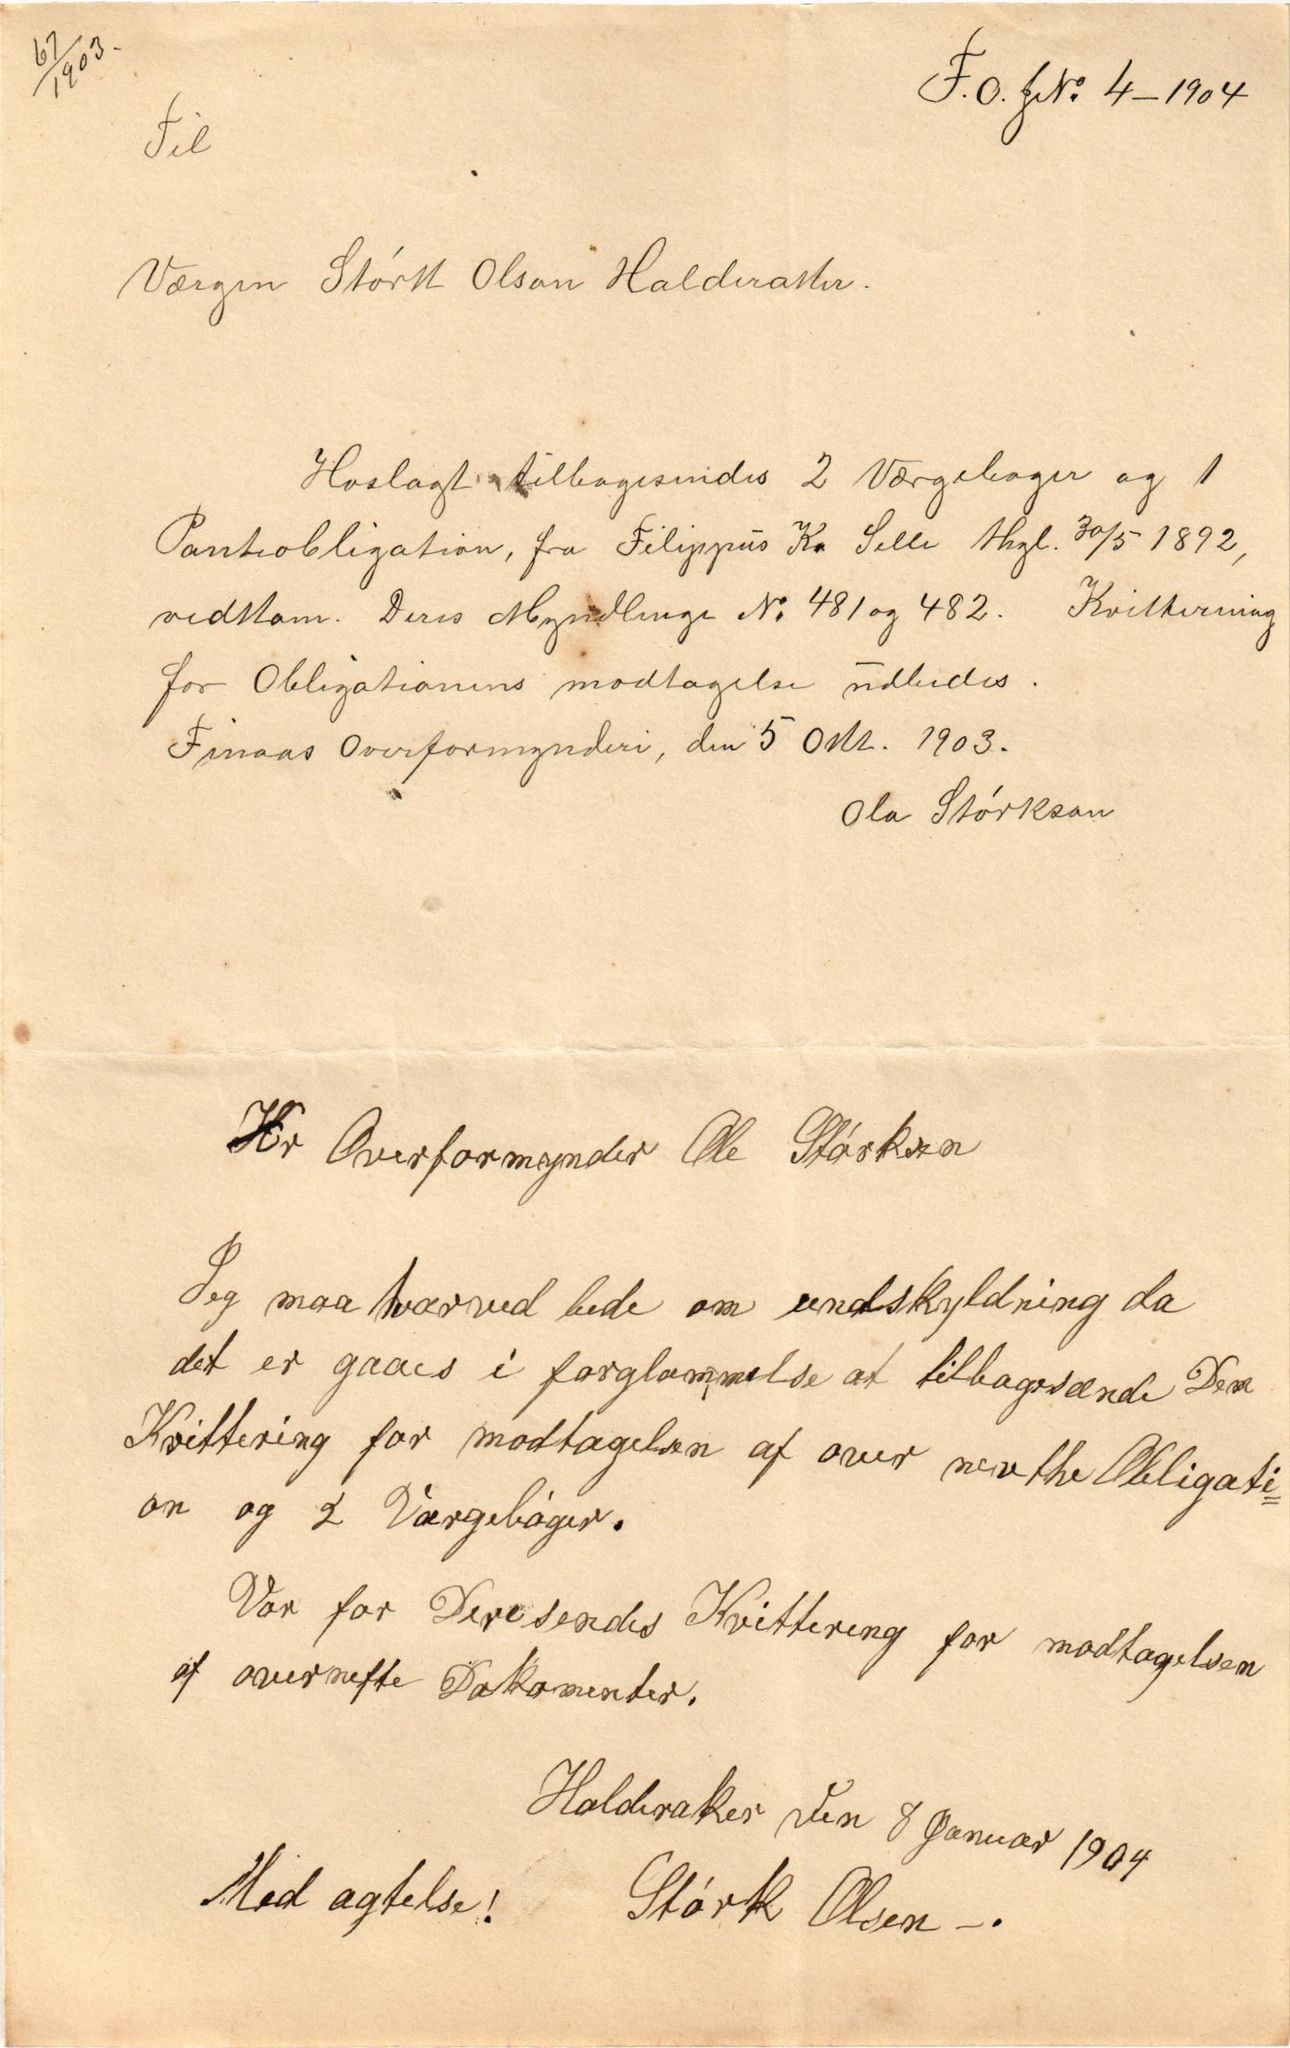 67/1903.
F.O. JNo. 4–1904
Til
Værgen Størk Olson Halderaker.
Hoslagt tilbagesendes 2 Værgebøger og 1
Panteobligation, fra Filippus K. Selle thgl. 30/5 1892,
vedkom. Deres Myndlinge No. 481 og 482. Kvitterning
for Obligationens modtagelse udbedes.
Finaas Overformynderi, den 5 Okt. 1903.
Ola Størkson
Hr Overformynder Ole Størksen
Jeg maa hærved bede om undskyldning da
det er gaaes i forglømmelse at tilbagesænde Dem
Kvittering for modtagelsen af over nevthe Obligati=
on og 2 Værgebøger.
Vor for Dere sendes Kvittering for modtagelsen
af overnefte Dokomenter.
Halderaker den 8 Januar 1904
Med agtelse! Størk Olsen –.